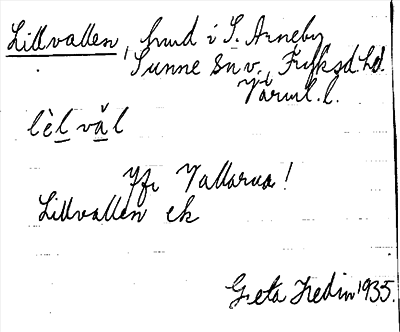 Lillvallen, hmd i S. Arneby
Sunne sn v., Fryksd. hd.
Värml. l.
lèl väl
Jfr Vallarna!
Lillvallen ek
Greta Hedin 1935.